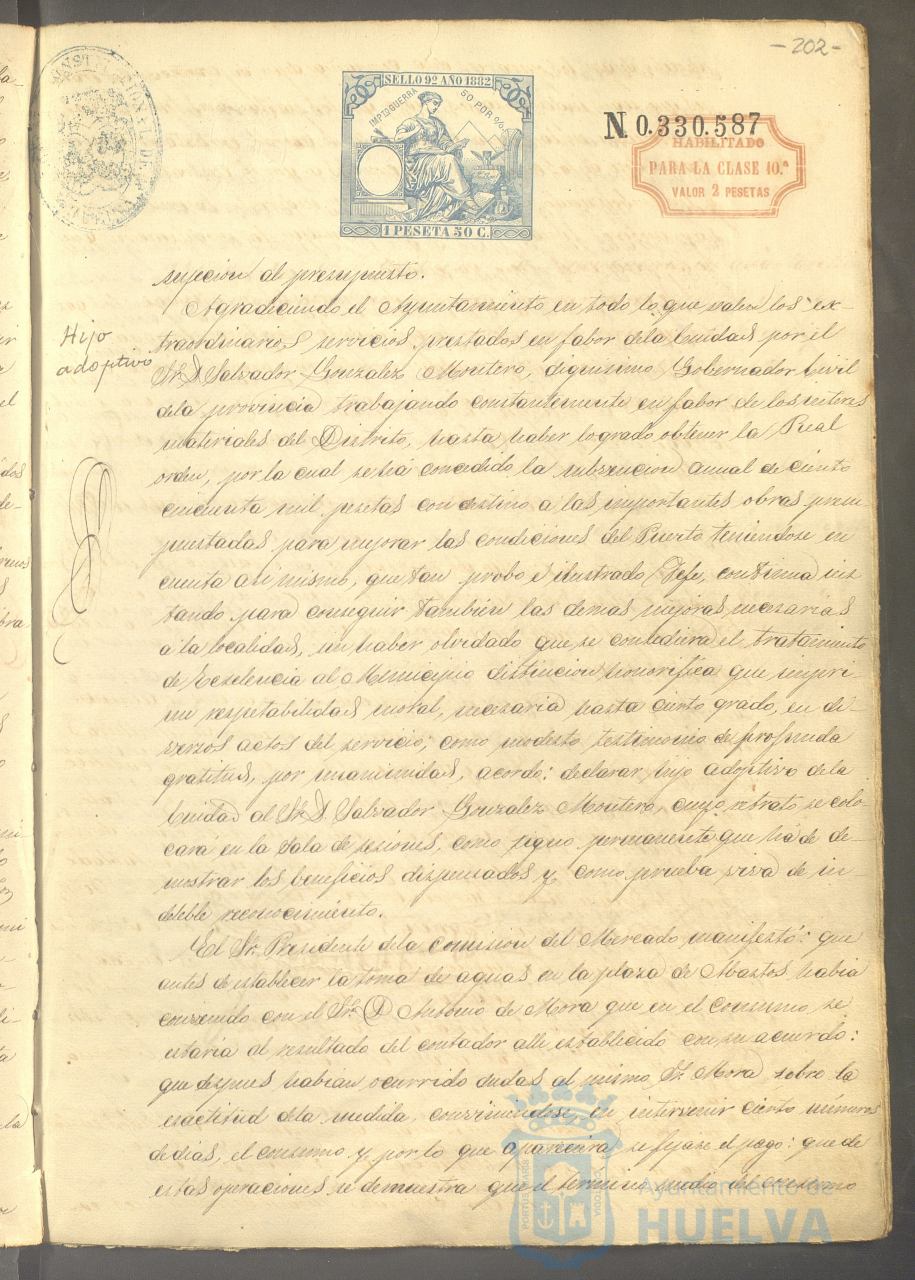 -202-
SELLO 9º AÑO 1882
IMPTO GUERRA 50 POR %
1 PESETA 50 C.
N. 0.330.587
HABILITADO
PARA LA CLASE 10.ª
VALOR 2 PESETAS
sugecion al presupuesto.
Hijo
adoptivo
Agradiciendo el Ayuntamiento en todo lo que valen los ex-
traordinarios servicios prestados en fabor dela Ciudad por el
Sr. D. Salvador Gonzalez Montero, dignisimo Gobernador Civil
dela provincia trabajando constantemente en fabor de los interes
materiales del Distrito, hasta haber logrado obtener la Real
orden, por la cual se há concedido la subvencion anual de ciento
cincuenta mil pesetas con destino a las importantes obras presu
puestadas para mejorar las condiciones del Puerto teniendose en
cuenta asi mismo, que tan probo é ilustrado Jefe, continua ins
tando para conseguir tambien las demas mejoras necesarias
a la localidad, sin haber olvidado que se concediera el tratamiento
de Exelencia al Municipio distincion honorifica que impri-
me respetabilidad moral, necesaria hasta cierto grado, en di-
verzos actos del servicio; como modesto testimonio de profunda
gratitud, por unanimidad, acordo: declarar hijo adoptivo dela
Ciudad al Sr. D. Salvador Gonzalez Montero, cuyo retrato se colo-
cará en la Sala de sesiones, como signo permanente que há de de-
mostrar los beneficios dispensados y como prueba viva de in-
deleble reconocimiento.
El Sr. Presidente dela comision del Mercado manifestó: que
antes de establecer la toma de aguas en la plaza de Abastos habia
convenido con el Sr. D. Antonio de Mora que en el consumo, se
estaria al resultado del contador alli establecido con su acuerdo:
que despues habian ocurrido dudas al mismo Sr. Mora sobre la
exactitud dela medida, conviniendose, en intervenir cierto número
de dias, el consumo y por lo que apareciera se fijase el pago: que de
estas operaciones se demuestra que el termino medio del consumo
Ayuntamiento de
HUELVA